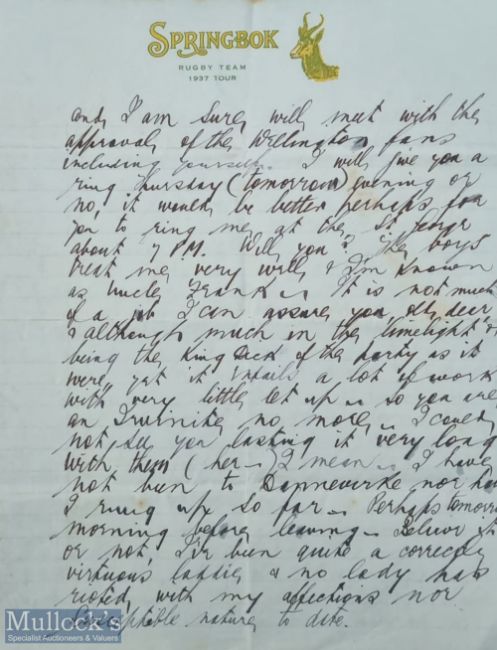 SPRINGBOK
RUGBY TEAM
1937 TOUR
and, I am sure, will meet with the
approval of the Wellington fans
including yourself. I will give you a
ring Thursday (tomorrow) evening or
no, it would be better perhaps for
you to ring me at the St. George
about 7 P.M. Will you? The boys
treat me very well & I'm known
as Uncle Frank. It is not much
of a job I can assure you dear
& although much in the limelight &
being the King of the party as it
were, yet it entails a lot of work
with very little let up so you are
an no more. I could
not see you lasting it very long
with them (her) I mean. I have
not been to Dannevirke nor have
I rung up so far. Perhaps tomorrow
morning before leaving. Believe it
or not, I've been quite a correctly
virtuous laddie & no lady has
with my affections nor
susceptible nature to date.
Mullock's
Specialist Auctioneers & Valuers